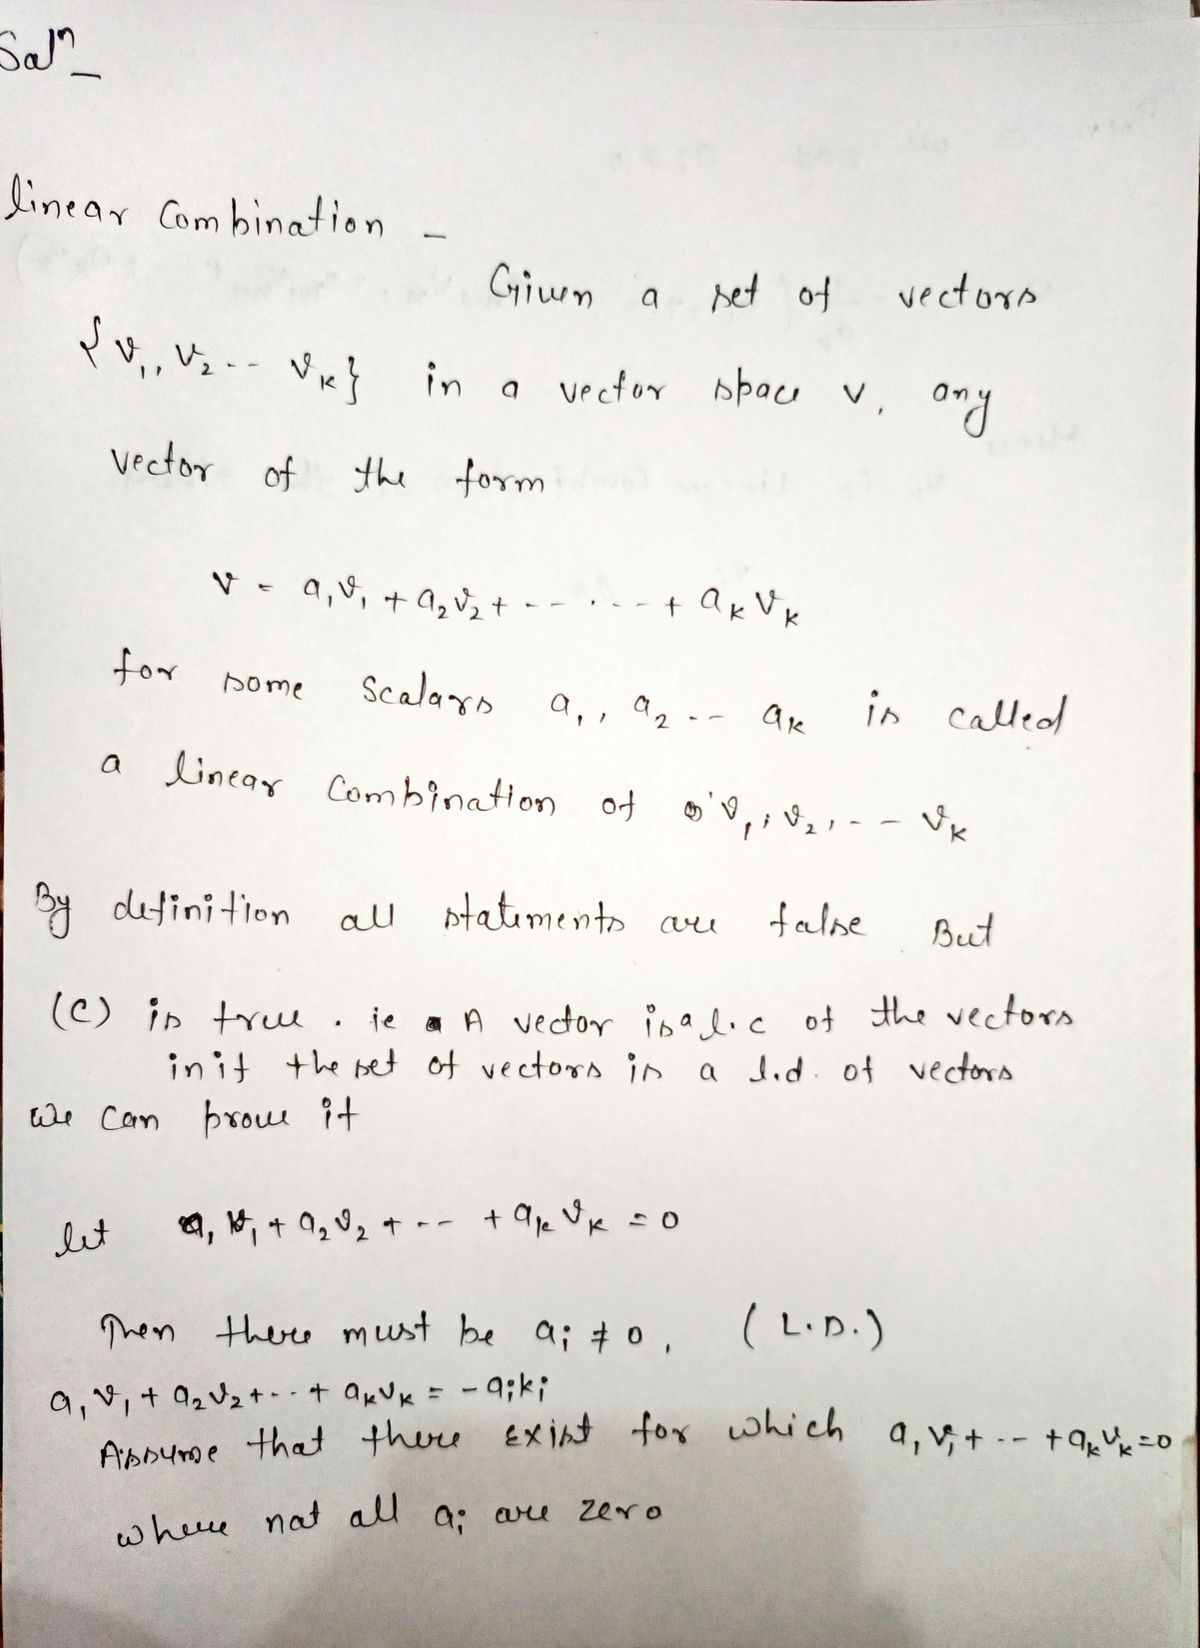 Solⁿ_
linear Combination -
Given a set of vectors
{v₁, v₂ -- vₖ} in a vector space v, any
vector of the form
v = a₁v₁ + a₂v₂ + -- . . -- + aₖvₖ
for some Scalars a₁, a₂ -- aₖ is called
a linear Combination of v₁, v₂, -- vₖ
By definition all statements are false But
(C) is true. ie A vector is a l.c of the vectors
in if the set of vectors is a l.d. of vectors
We can prove it
let a₁v₁ + a₂v₂ + -- + aₖvₖ = 0
Then there must be aᵢ ≠ 0, (L.D.)
a₁v₁ + a₂v₂ + -- + aₖvₖ = - aᵢkᵢ
Assume that there exist for which a₁v₁ + -- + aₖvₖ = 0
where not all aᵢ are zero